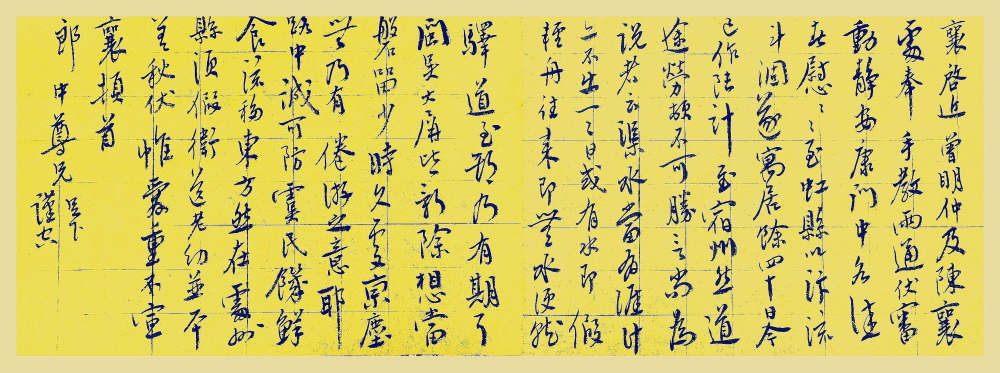 襄啓近曾明仲及陳襄
處奉手教兩通伏審
動靜安康門中各佳
甚慰々々至虹縣以汴流
斗涸遂寓居餘四十日今
已作陸計至宿州然道
途勞頓不可勝言尚為
說者云渠水當有涯計
亦不出一二日或有水即假
輕舟往來即無水便就
驛道至都乃有期耳
閤吳大屏皆新除想當
磐留少時久處京塵
無乃有倦游之意耶
路中誠可防虞民饉鮮
食流移東方然在處州
縣須假衛送老幼並平
善秋伏惟愛重不宣
襄頓首
郎中尊兄足下
謹空